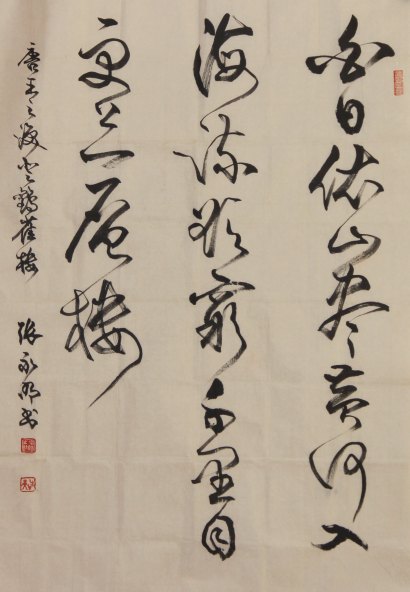 白日依山尽黄河入
海流欲穷千里目
更上一层楼
唐王之涣登鹳雀楼 张永明书